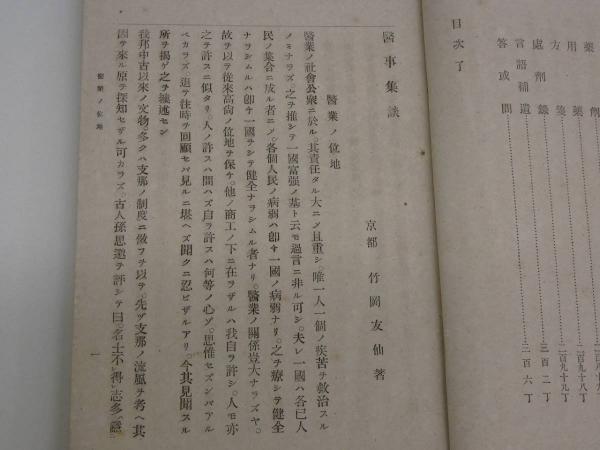 藥劑
用藥
方箋
處劑錄
言語補遺
答或問
二百九十八丁
二百九十九丁
二百二丁
二百六丁
目次了
醫事集談
京都 竹岡友仙著
醫業ノ位地
醫業ノ社會公衆ニ於ル。其責任タル大ニノ且重シ唯一人一個ノ疾苦テ救治スル
ノミナラズ之テ推シテ一國富强ノ基ト云モ過言ニ非ル可シ。夫レ一國ハ各巳人
民ノ集合ニ成ル者ニノ。各個人民ノ病弱ハ卽ケ一國ノ病弱ナリ。之テ療シテ健全
ナラシムルハ卽ケ一國ヲシテ健全ナラシムル者ナリ。醫業ノ關係豈大ナラズヤ。
故ヲ以テ從來高尙ノ位地テ保ケ。他ノ商工ノ下ニ在ラザルハ我自ラ許シ。人モ亦
之テ許スニ似タリ。人ノ許スハ間ハズ自ラ許スハ何等ノ心ゾ。思惟セズンバアル
ベカラズ退テ往時テ回顧セバ見ルニ堪ヘズ聞クニ忍ビザルアリ。今其見聞スル
所ヲ揭ゲ之テ縷述セン
我邦中古以來ノ文物。多クハ支那ノ制度ニ倣フテ以テ。先ヅ支那ノ流風テ考ヘ其
因テ來ル原テ探知セザル可カラズ。古人孫思邈テ評シテ曰。名士不得志多隱
醫業ノ位地
一